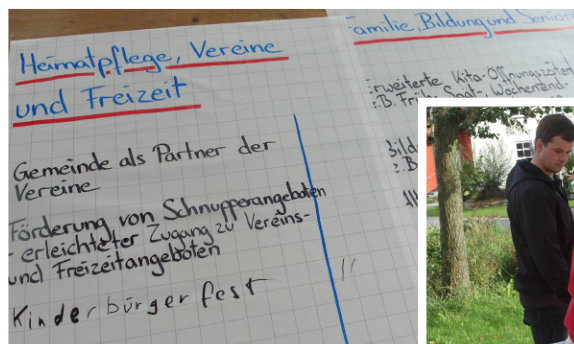 Heimatpflege, Vereine
und Freizeit
Gemeinde als Partner der
Vereine
Förderung von Schnupperangeboten
- erleichteter Zugang zu Vereins-
und Freizeitangeboten
Kinderbürgerfest
Familie, Bildung und Senioren
Erweiterte Kita-Öffnungszeiten
z.B. Früh-, Spät-, Wochenend-
Bild
z.B